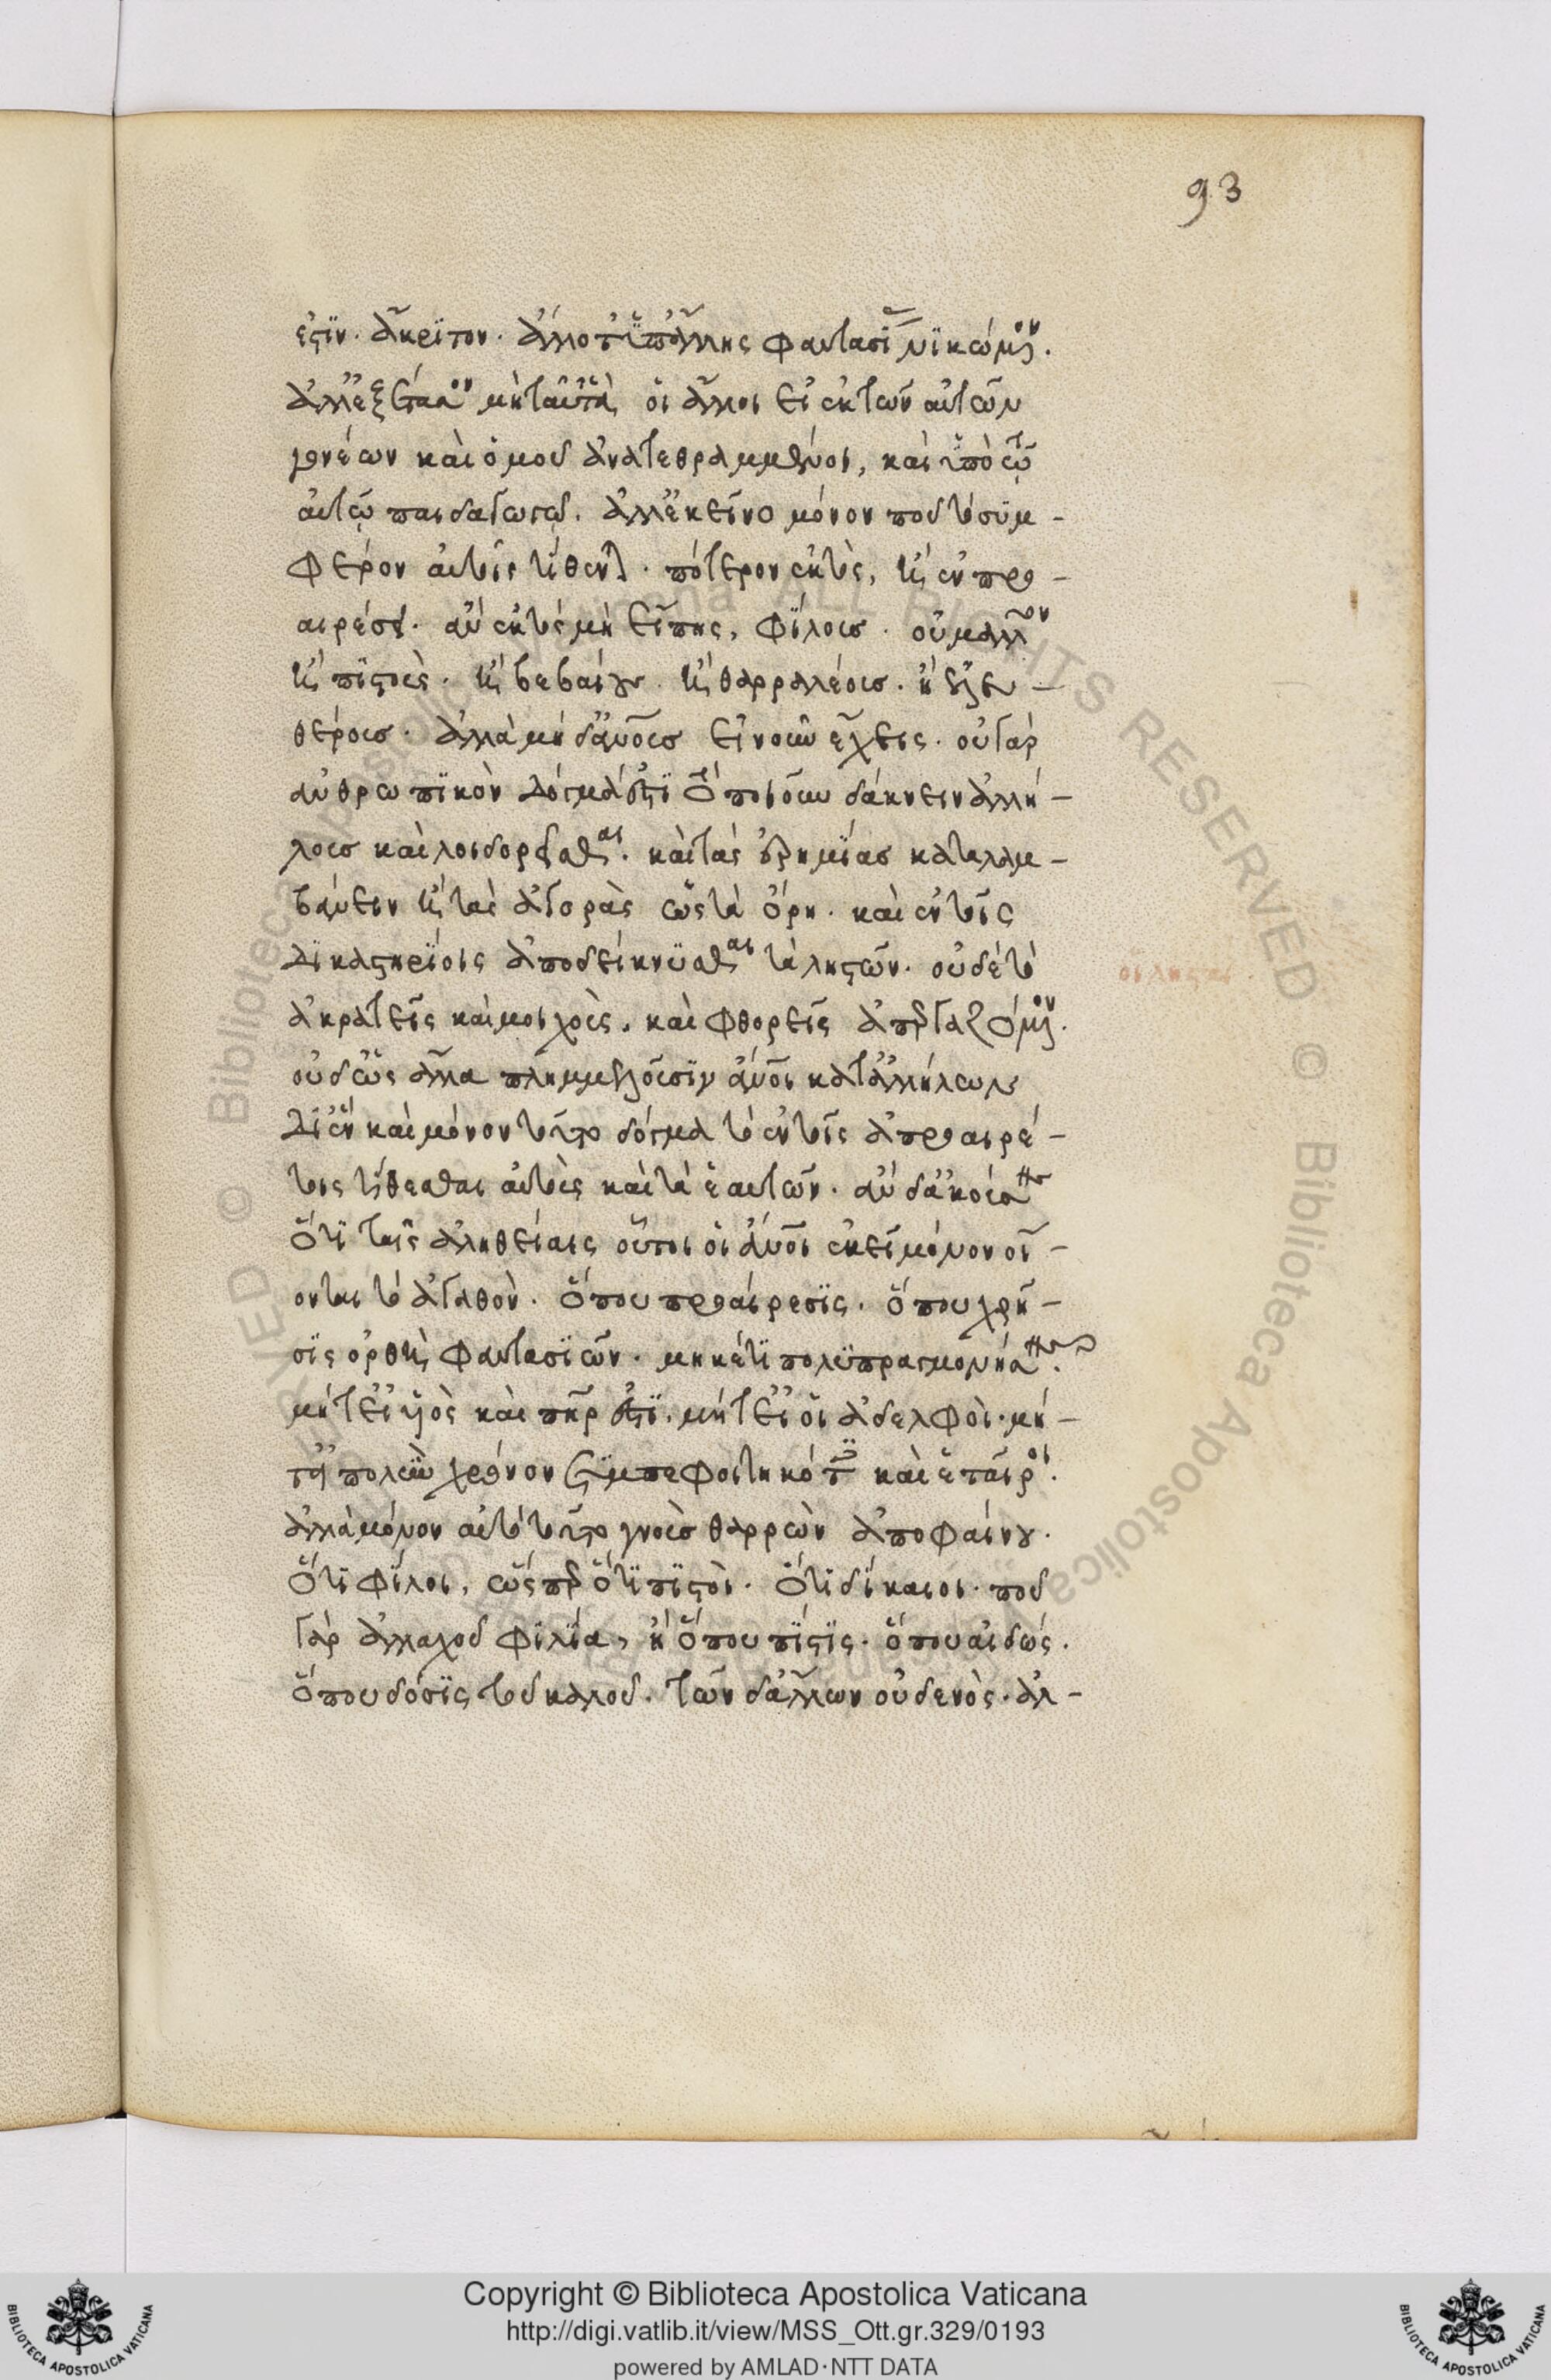 93
ἐστιν ἄκριτον. ἄλλοτε ὑπ' ἄλλης φαντασίας νικώμενον.
ἀλλ' ἐξέτασον μὴ ταῦτα ἃ οἱ ἄλλοι εἰ ἐκ τῶν αὐτῶν
γονέων καὶ ὁμοῦ ἀνατεθραμμένοι, καὶ ὑπὸ τῷ
αὐτῷ παιδαγωγῷ. ἀλλ' ἐκεῖνο μόνον ποῦ τὸ συμ-
φέρον αὐτοῖς τίθενται. πότερον ἐκτὸς, ἢ ἐν προ-
αιρέσει. ἂν ἐκτὸς μὴ εἴπῃς, φίλους. οὐ μᾶλλον
ἢ πιστοὺς. ἢ βεβαίους. ἢ θαρραλέους. ἢ ἐλευ-
θέρους. ἀλλὰ μηδ' ἀνους εἰ νοῦν ἔχεις. οὐ γὰρ
ἀνθρωπικὸν δόγμά ἐστι τὸ ποιοῦν δάκνειν ἀλλή-
λους καὶ λοιδορεῖσθαι. καὶ τὰς ἐρημίας καταλαμ-
βάνειν ἢ τὰς ἀγορὰς ὡς τὰ ὄρη. καὶ ἐν τοῖς
δικαστηρίοις ἀποδείκνυσθαι τὰ λῃστῶν. οὐδὲ τὸ
ἀκρατεῖς καὶ μοιχοὺς. καὶ φθορεῖς ἀπεργαζόμενον.
οὐδ' ὅσ' ἄλλα πλημμελοῦσιν ἄνοι κατ' ἀλλήλων
δι' ἓν καὶ μόνον τοῦτο δόγμα τὸ ἐν τοῖς ἀπροαιρέ-
τοις τίθεσθαι αὐτοὺς καὶ τὰ ἑαυτῶν. ἂν δ' ἀκούσῃς
ὅτι ταῖς ἀληθείαις οὗτοι οἱ ἄνοι ἐκεῖ μόνον οἴ-
ονται τὸ ἀγαθὸν. ὅπου προαίρεσις. ὅπου χρῆ-
σις ὀρθὴ φαντασιῶν. μηκέτι πολυπραγμονήσῃς.
μήτ' εἰ υἱὸς καὶ πηρ ἐστι. μήτ' εἰ οἱ ἀδελφοὶ. μή-
τ' εἰ πολὺν χρόνον συμπεφοιτηκότες καὶ ἑταῖροι.
ἀλλὰ μόνον αὐτὸ τοῦτο γνοὺς θαρρῶν ἀποφαίνου.
ὅτι φίλοι, ὥσπερ ὅτι πιστοὶ. ὅτι δίκαιοι. ποῦ
γὰρ ἀλλαχοῦ φιλία, ἢ ὅπου πίστις. ὅπου αἰδώς.
ὅπου δόσις τοῦ καλοῦ. τῶν δ' ἄλλων οὐδενὸς. ἀλ-
οἱ λῃσταί
Copyright © Biblioteca Apostolica Vaticana
http://digi.vatlib.it/view/MSS_Ott.gr.329/0193
powered by AMLAD·NTT DATA